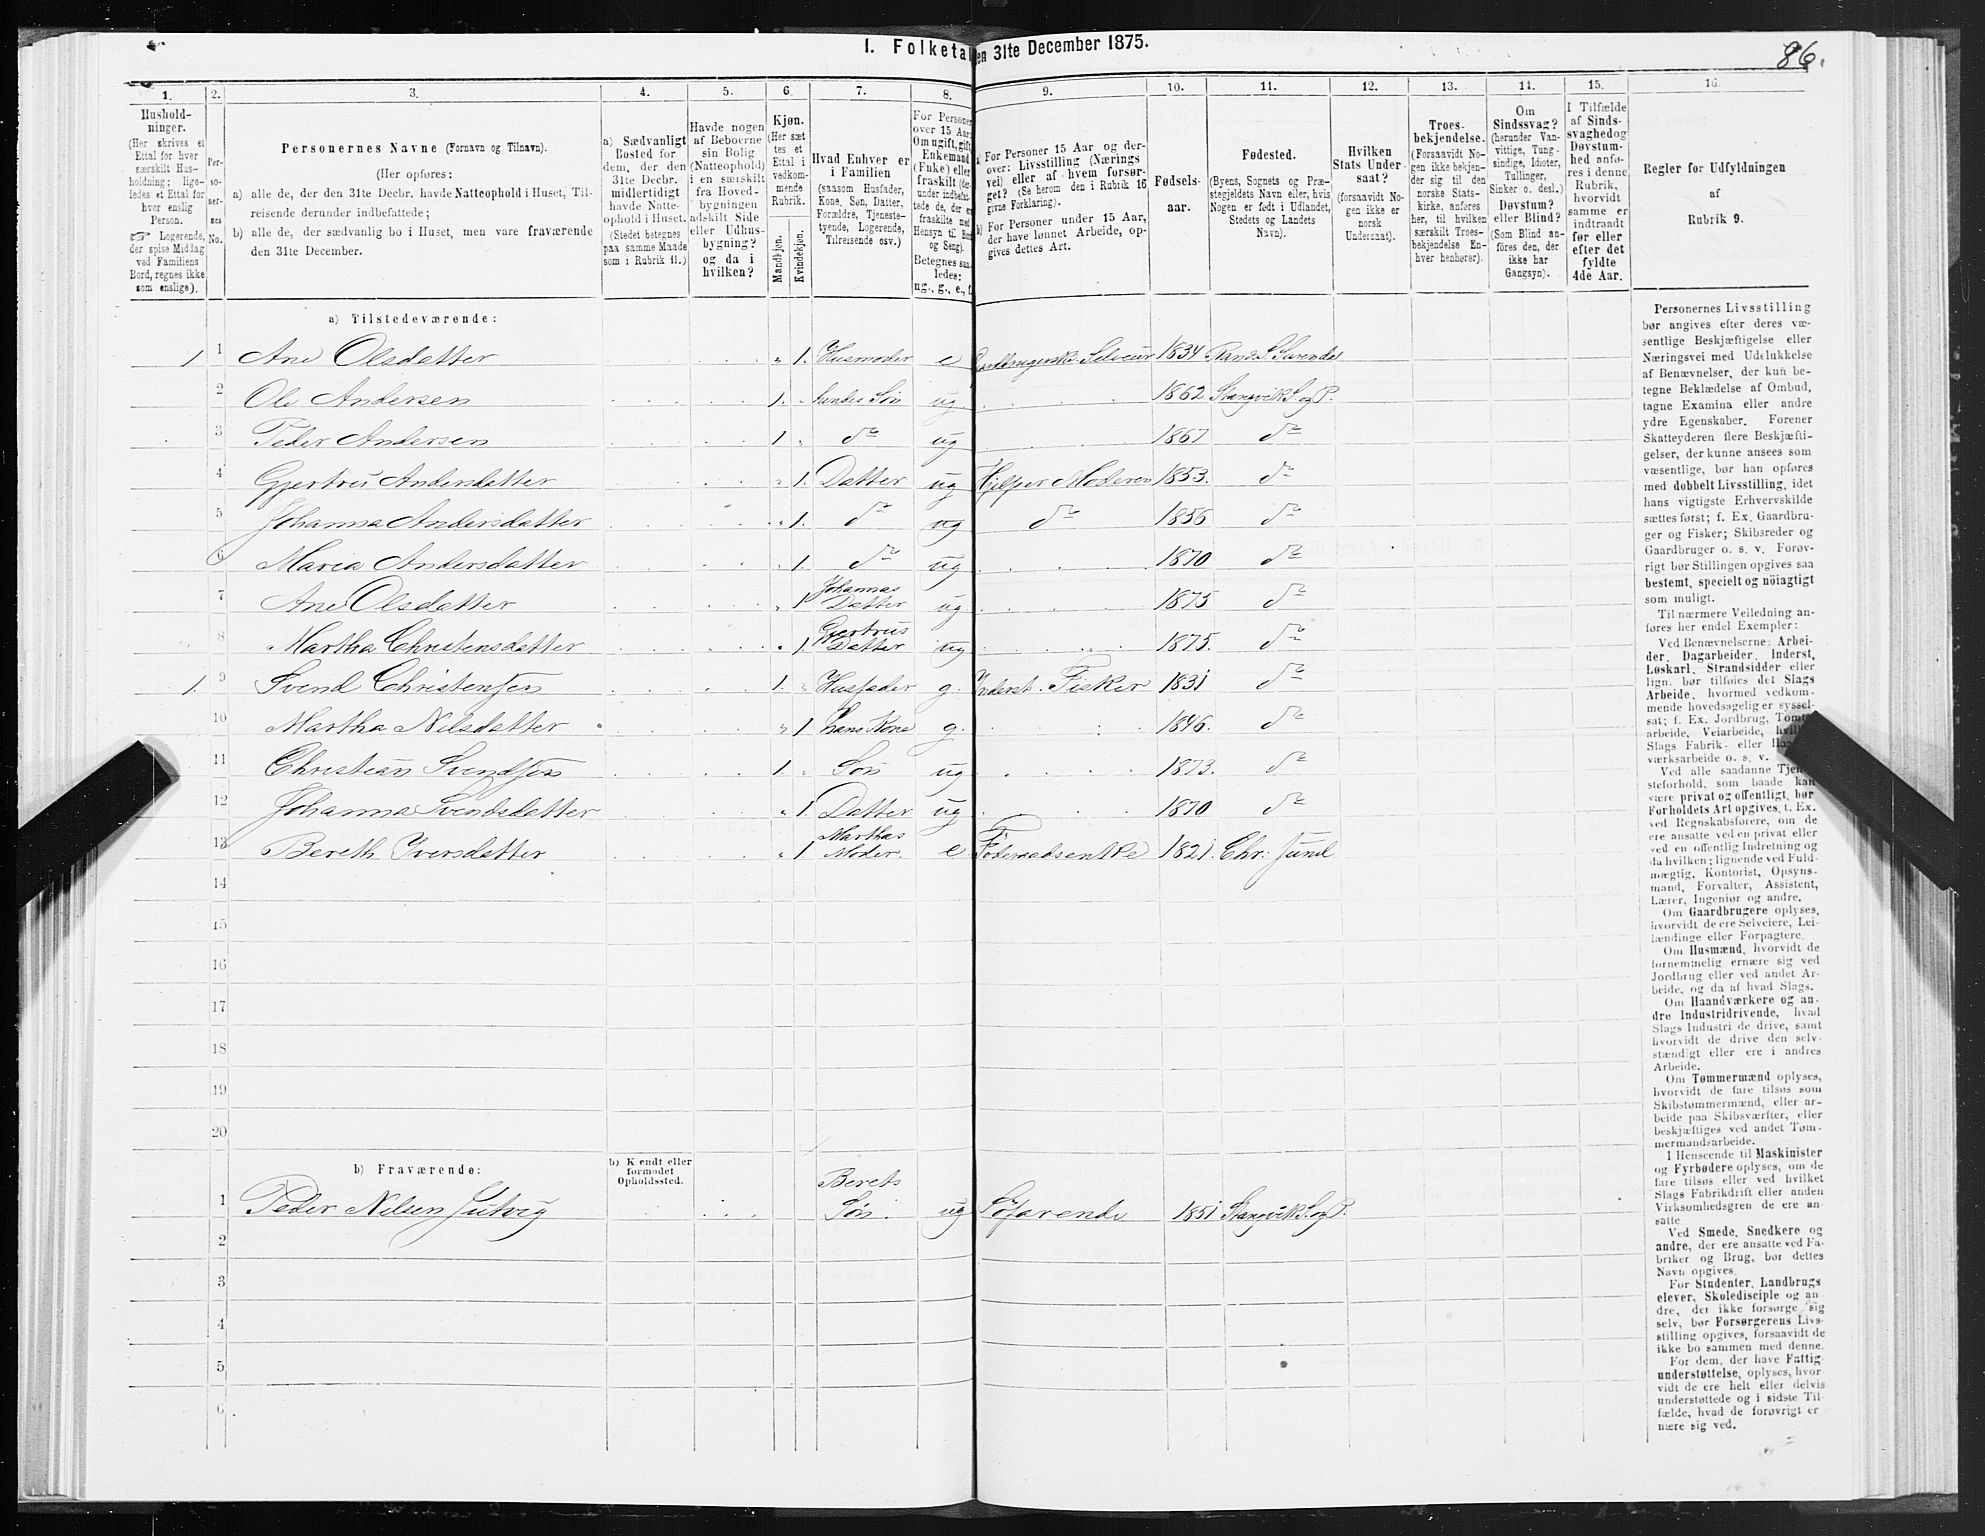 I. Folketal
en 31te December 1875.
86.
1.
Hushold-
ninger.
(Her skrives et
Ettal for hver
særskilt Hus-
holdning; lige-
ledes et Ettal for
hver enslig
Person.
☞ Logerende,
der spise Midlag
ved Familiens
Bord, regnes ikke
som enslige).
2.
Per-
so-
ner-
nes
No.
3.
Personernes Navne (Fornavn og Tilnavn).
(Her opføres:
a) alle de, der den 31te Decbr. havde Natteophold i Huset, Til-
reisende derunder indbefattede;
b) alle de, der sædvanlig bo i Huset, men vare fraværende
den 31te December.
4.
a) Sædvanligt
Bosted for
dem, der den
31te Decbr.
midlertidigt
havde Natte-
ophold i Huset.
(Stedet betegnes
paa samme Maade
som i Rubrik 11.)
5.
Havde nogen
af Beboerne
sin Bolig
(Natteophold)
i en særskilt
fra Hoved-
bygningen
adskilt Side
eller Udhus-
bygning?
og da i
hvilken?
6.
Kjøn.
(Her sæt-
tes et
Ettal i
vedkom-
mende
Rubrik.
Mandkjøn.
Kvindekjøn.
7.
Hvad Enhver er
i Familien
(saasom Husfader,
Kone, Søn, Datter,
Forældre, Tjeneste-
tyende, Logerende,
Tilreisende osv.)
8.
For Personer
over 15 Aar:
Om ugift, gift,
Enkemand
(Enke) eller
fraskilt (der-
under indbefat-
tede de, der ere
fraskilte med
Hensyn til Bord
og Seng).
Betegnes saa-
ledes:
ug., g., e., f.
9.
a) For Personer 15 Aar og der-
over: Livsstilling (Nærings-
vei) eller af hvem forsør-
get? (Se herom den i Rubrik 16
givne Forklaring).
b) For Personer under 15 Aar,
der have lønnet Arbeide, op-
gives dettes Art.
10.
Fødsels-
aar.
11.
Fødested.
(Byens, Sognets og Præ-
stegjeldets Navn eller, hvis
Nogen er født i Udlandet,
Stedets og Landets
Navn).
12.
Hvilken
Stats Under-
saat?
(forsaavidt No-
gen ikke er
norsk
Undersaat).
13.
Troes-
bekjendelse.
(Forsaavidt No-
gen ikke bekjen-
der sig til den
norske Stats-
kirke, anføres
her, til hvilken
særskilt Troes-
bekjendelse En-
hver henhører).
14.
Om
Sindssvag?
(herunder Van-
vittige, Tung-
sindige, Idioter,
Tullinger,
Sinker o. desl.)
Døvstum?
eller Blind?
(Som Blind an-
føres den, der
ikke har
Gangsyn).
15.
I Tilfælde
af Sinds-
svaghed og
Døvstum-
hed anfø-
res i denne
Rubrik,
hvorvidt
samme er
indtraadt
før eller
efter det
fyldte
4de Aar.
16.
Regler for Udfyldningen
af
Rubrik 9.
a) Tilstedeværende:
1 1 Ane Olsdatter 1. Husmoder e Selveier 1834
2 Ole Andersen 1. hendes Søn ug 1862 Stangvik S. og P.
3 Peder Andersen 1 do ug 1867 do
4 Gjertrus Andersdatter 1. Datter ug Hjelper Moderen 1853. do
5 Johanna Andersdatter 1. do ug do 1856 do
6 Maria Andersdatter 1. do ug 1870 do
7 Ane Olsdatter 1 Johannas Datter ug 1875 do
8 Martha Christensdatter 1 Gjertrus Datter ug 1875. do
1. 9 Svend Christensen 1. Husfader g. Inderst. Fisker 1831 do
10 Martha Nilsdatter 1 hans Kone g. 1846. do
11 Christian Svendsen 1. Søn ug 1873. do
12 Johanna Svendsdatter 1 Datter ug 1870 do
13 Bereth Iversdatter 1 Marthas Moder. e Føderaadsenke 1821. Chr: sund
14
15
16
17
18
19
20
b) Fraværende:
b) Kjendt eller
formodet
Opholdssted.
1 Peder Nilsen Jutvig Berets Søn. ug Søfarende 1851 Stangvik S. og P.
2
3
4
5
6
Personernes Livsstilling
bør angives efter deres væ-
sentlige Beskjæftigelse eller
Næringsvei med Udelukkelse
af Benævnelser, der kun be-
tegne Beklædelse af Ombud,
tagne Examina eller andre
ydre Egenskaber. Forener
Skatteyderen flere Beskjæfti-
gelser, der kunne ansees som
væsentlige, bør han opføres
med dobbelt Livsstilling, idet
hans vigtigste Erhvervskilde
sættes først; f. Ex. Gaardbru-
ger og Fisker; Skibsreder og
Gaardbruger o. s. v. Forøv-
rigt bør Stillingen opgives saa
bestemt, specielt og nöiagtigt
som muligt.
Til nærmere Veiledning an-
føres her endel Exempler:
Ved Benævnelserne: Arbei-
der, Dagarbeider, Inderst,
Løskarl, Strandsidder eller
lign. bør tilføies det Slags
Arbeide, hvormed vedkom-
mende hovedsagelig er syssel-
sat; f. Ex. Jordbrug, Tømt
arbeide, Veiarbeide, hvil
Slags Fabrik- eller Haa
værksarbeide o. s. v.
Ved alle saadanne Tjen
steforhold, som baade kan
være privat og offentligt, bør
Forholdets Art opgives, t. Ex.
ved Regnskabsførere, om de
ere ansatte ved en privat eller
ved en offentlig Indretning og
da hvilken; lignende ved Fuld-
mægtig, Kontorist, Opsyns-
mand, Forvalter, Assistent,
Lærer, Ingeniør og andre.
Om Gaardbrugere oplyses,
hvorvidt de ere Selveiere, Lei-
lændinge eller Forpagtere.
Om Husmænd, hvorvidt de
fornemmelig ernære sig ved
Jordbrug eller ved andet Ar-
beide, og da af hvad Slags.
Om Haandværkere og an-
dre Industridrivende, hvad
Slags Industri de drive, samt
hvorvidt de drive den selv-
stændigt eller ere i andres
Arbeide.
Om Tømmermænd oplyses,
hvorvidt de fare tilsøs som
Skibstømmermænd, eller ar-
beide paa Skibsværfter, eller
beskjæftiges ved andet Tøm-
mermandsarbeide.
I Henseende til Maskinister
og Fyrbødere oplyses, om de
fare tilsøs eller ved hvilket
Slags Fabrikdrift eller anden
Virksomhedsgren de ere an-
satte.
Ved Smede, Snedkere og
andre, der ere ansatte ved Fa-
briker og Brug, bør dettes
Navn opgives.
For Studenter, Landbrugs
elever, Skoledisciple og an
dre, der ikke forsørge sig
selv, bør Forsørgerens Livs-
stilling opgives, forsaavidt de
ikke bo sammen med denne.
For dem, der have Fattig-
understøttelse, oplyses, hvor-
vidt de ere helt eller delvis
understøttede og i sidste Til-
fælde, hvad de forøvrigt er
nære sig ved.